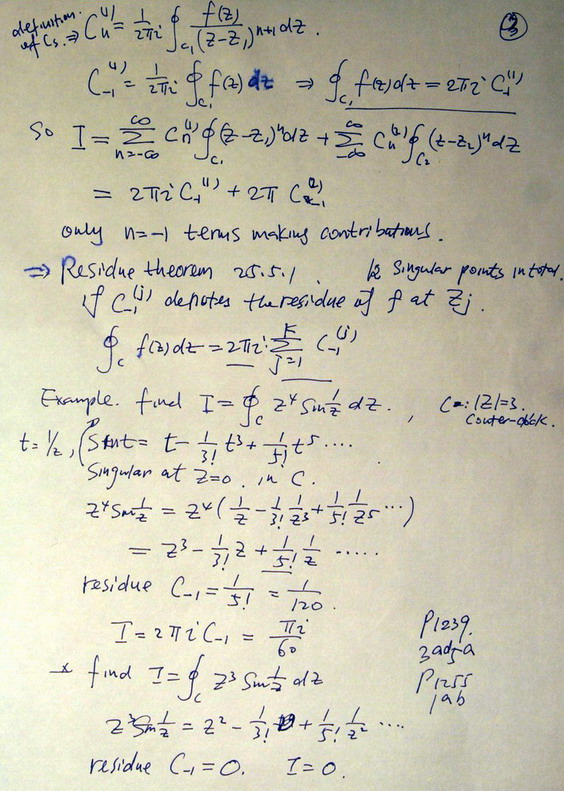 definition of Cs. ⇒ Cn^(1) = 1/2πi ∮_{C1} f(z)/(z-z1)^{n+1} dz.
③
C-1^(1) = 1/2πi ∮_{C1} f(z) dz ⇒ ∮_{C1} f(z) dz = 2πi C-1^(1)
So I = Σ_{n=-∞}^{∞} Cn^(1) ∮_{C1} (z-z1)^n dz + Σ_{-∞}^{∞} Cn^(2) ∮_{C2} (z-z2)^n dz
= 2πi C-1^(1) + 2π C-1^(2)
only n=-1 terms making contributions.
⇒ Residue theorem 25.5.1. k singular points in total.
if C-1^(j) denotes the residue of f at zj.
∮_C f(z) dz = 2πi Σ_{j=1}^{k} C-1^(j)
Example. find I = ∮_C z^4 Sin 1/z dz. , C: |z|=3.
Couter-clock.
t = 1/z, Sint = t - 1/3! t^3 + 1/5! t^5 ....
Singular at z=0. in C.
z^4 Sin 1/z = z^4 ( 1/z - 1/3! 1/z^3 + 1/5! 1/z^5 ... )
= z^3 - 1/3! z + 1/5! 1/z .....
residue C-1 = 1/5! = 1/120.
I = 2πi C-1 = πi/60
P1239.
3adja
P1255
1ab
* find I = ∮_C z^3 Sin 1/z dz
z^3 Sin 1/z = z^2 - 1/3! + 1/5! 1/z^2 ....
residue C-1 = 0. I = 0.